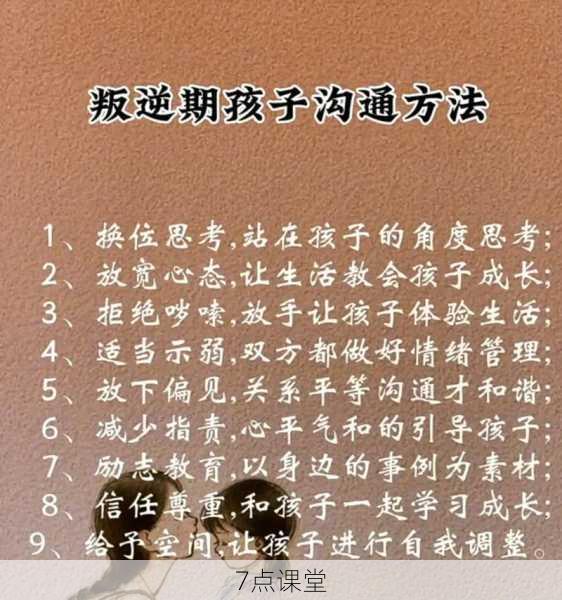 叛逆期孩子沟通方法
1、换位思考,站在孩子的角度思考;
2、放宽心态,让生活教会孩子成长;
3、拒绝哆嗦,放手让孩子体验生活;
4、适当示弱,双方都做好情绪管理;
5、放下偏见,关系平等沟通才和谐;
6、减少指责,心平气和的引导孩子;
7、励志教育,以身边的事例为素材;
8、信任尊重,和孩子一起学习成长;
9、给予空间,让孩子进行自我调整。
7点课堂